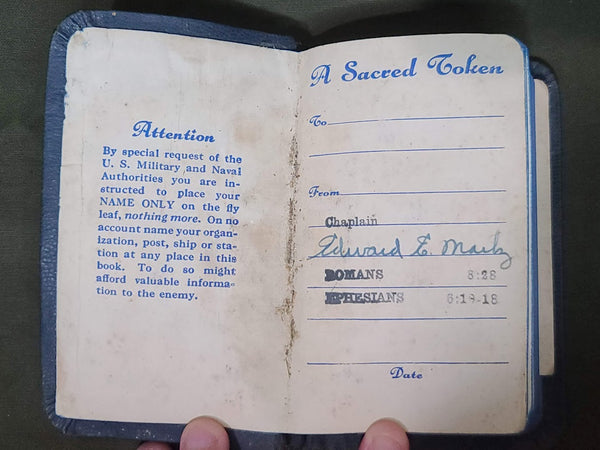 Attention
By special request of the
U. S. Military and Naval
Authorities you are in-
structed to place your
NAME ONLY on the fly
leaf, nothing more. On no
account name your organ-
ization, post, ship or sta-
tion at any place in this
book. To do so might
afford valuable informa-
tion to the enemy.
A Sacred Token
To
From
Chaplain
Edward E.
ROMANS 8:28
EPHESIANS 6:10-18
Date